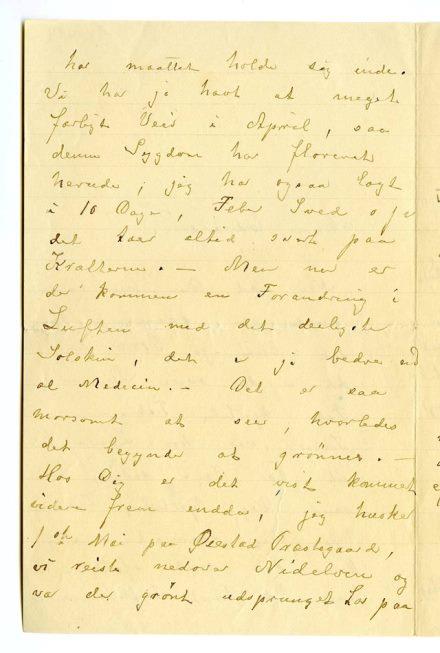 har maattet holde sig inde.
Vi har jo havt et meget
færligt Veir i April, saa
denne Sygdom har floreret
herude; jeg har ogsaa lagt
i 10 Dage, Feber Sved o s v
det taer altid svært paa
Kræfterne. — Men nu er
der kommen en Forandring i
Luften med det deiligste
Solskin, det er jo bedre end
al Medicin. — Det er saa
morsomt at see, hvorledes
det begynder at grønnes. —
Hos Dig er det vist kommet
videre frem endda, jeg husker
1ste Mai paa Øiestad Præstegaard,
vi reiste nedover Nidelven og
var der grønt udsprunget Løv paa